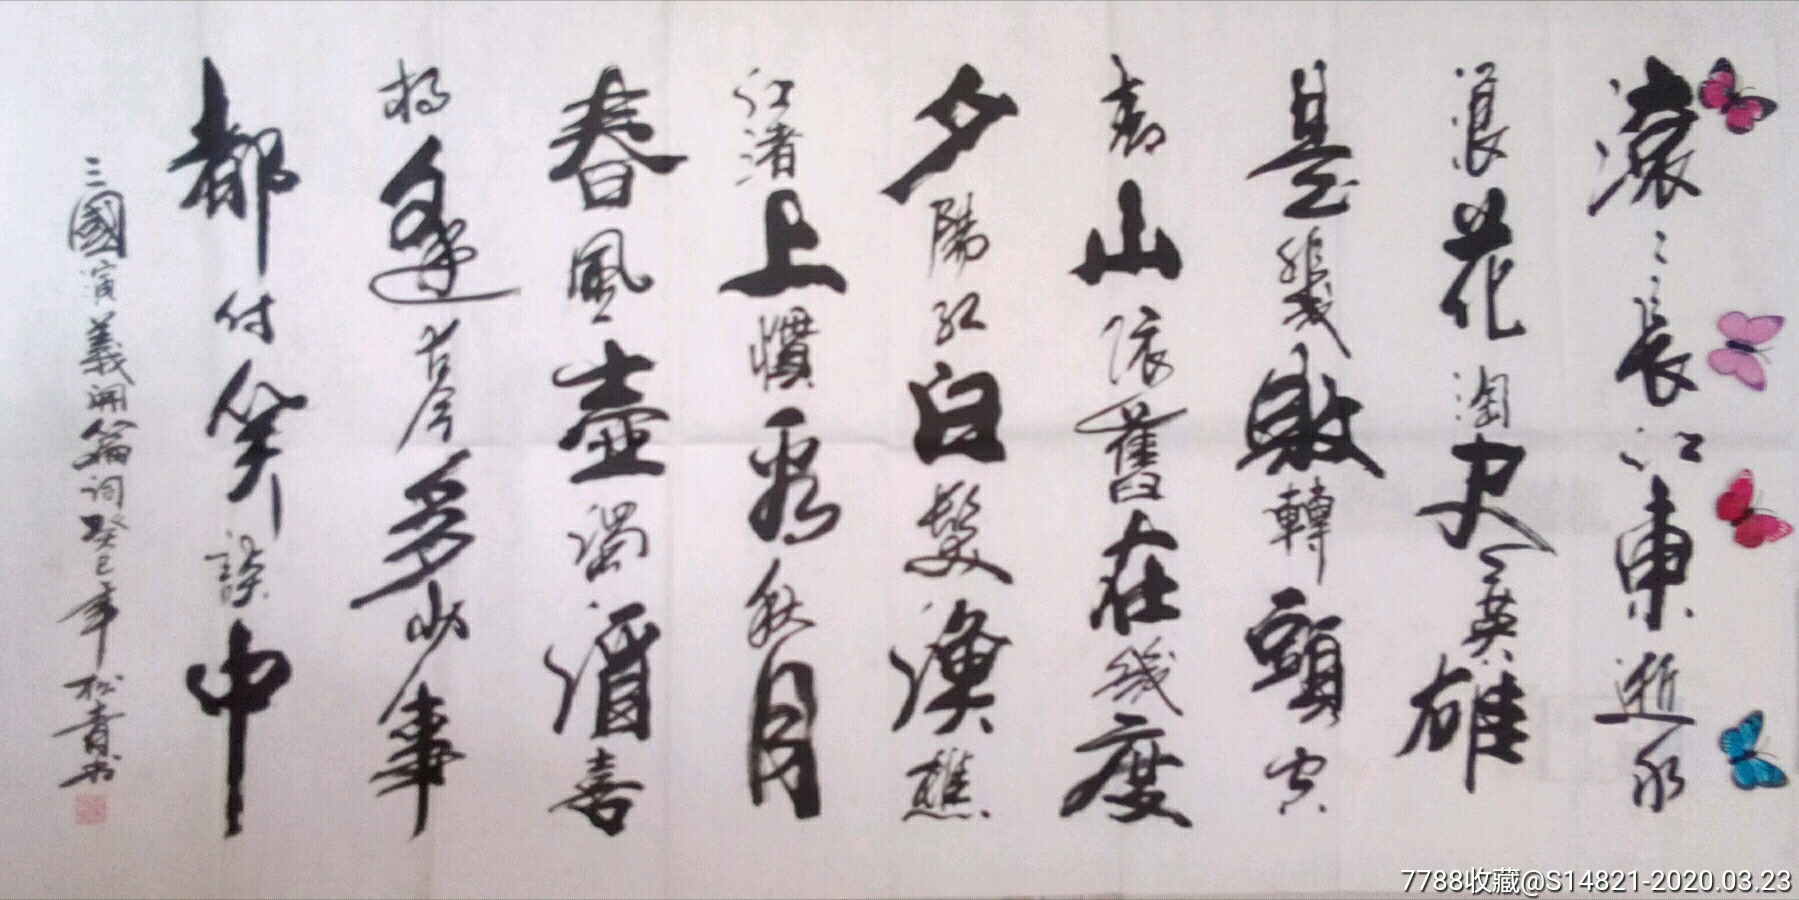 滚〻長江東逝水
浪花淘尽英雄
是非成敗轉頭空
青山依舊在幾度
夕陽红白髮渔樵
江渚上慣看秋月
春風一壺濁酒喜
相逢古今多少事
都付笑談中
三國演義開篇词癸巳年松青书
7788收藏@S14821-2020.03.23